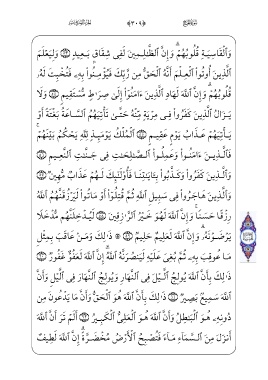 وَٱلْقَاسِيَةِ قُلُوبُهُمْ وَإِنَّ ٱلظَّٰلِمِينَ لَفِى شِقَاقٍۭ بَعِيدٍ ۝ وَلِيَعْلَمَ
ٱلَّذِينَ أُوتُوا۟ ٱلْعِلْمَ أَنَّهُ ٱلْحَقُّ مِن رَّبِّكَ فَيُؤْمِنُوا۟ بِهِۦ فَتُخْبِتَ لَهُۥ
قُلُوبُهُمْ وَإِنَّ ٱللَّهَ لَهَادِ ٱلَّذِينَ ءَامَنُوٓا۟ إِلَىٰ صِرَٰطٍ مُّسْتَقِيمٍ ۝ وَلَا
يَزَالُ ٱلَّذِينَ كَفَرُوا۟ فِى مِرْيَةٍ مِّنْهُ حَتَّىٰ تَأْتِيَهُمُ ٱلسَّاعَةُ بَغْتَةً أَوْ
يَأْتِيَهُمْ عَذَابُ يَوْمٍ عَقِيمٍ ۝ ٱلْمُلْكُ يَوْمَئِذٍ لِّلَّهِ يَحْكُمُ بَيْنَهُمْ
فَٱلَّذِينَ ءَامَنُوا۟ وَعَمِلُوا۟ ٱلصَّٰلِحَٰتِ فِى جَنَّٰتِ ٱلنَّعِيمِ ۝
وَٱلَّذِينَ كَفَرُوا۟ وَكَذَّبُوا۟ بِـَٔايَٰتِنَا فَأُو۟لَٰٓئِكَ لَهُمْ عَذَابٌ مُّهِينٌ ۝
وَٱلَّذِينَ هَاجَرُوا۟ فِى سَبِيلِ ٱللَّهِ ثُمَّ قُتِلُوٓا۟ أَوْ مَاتُوا۟ لَيَرْزُقَنَّهُمُ ٱللَّهُ
رِزْقًا حَسَنًا وَإِنَّ ٱللَّهَ لَهُوَ خَيْرُ ٱلرَّٰزِقِينَ ۝ لَيُدْخِلَنَّهُم مُّدْخَلًا
يَرْضَوْنَهُۥ وَإِنَّ ٱللَّهَ لَعَلِيمٌ حَلِيمٌ ۝ ۞ ذَٰلِكَ وَمَنْ عَاقَبَ بِمِثْلِ
مَا عُوقِبَ بِهِۦ ثُمَّ بُغِىَ عَلَيْهِ لَيَنصُرَنَّهُ ٱللَّهُ إِنَّ ٱللَّهَ لَعَفُوٌّ غَفُورٌ ۝
ذَٰلِكَ بِأَنَّ ٱللَّهَ يُولِجُ ٱلَّيْلَ فِى ٱلنَّهَارِ وَيُولِجُ ٱلنَّهَارَ فِى ٱلَّيْلِ وَأَنَّ
ٱللَّهَ سَمِيعٌۢ بَصِيرٌ ۝ ذَٰلِكَ بِأَنَّ ٱللَّهَ هُوَ ٱلْحَقُّ وَأَنَّ مَا يَدْعُونَ مِن
دُونِهِۦ هُوَ ٱلْبَٰطِلُ وَأَنَّ ٱللَّهَ هُوَ ٱلْعَلِىُّ ٱلْكَبِيرُ ۝ أَلَمْ تَرَ أَنَّ ٱللَّهَ
أَنزَلَ مِنَ ٱلسَّمَآءِ مَآءً فَتُصْبِحُ ٱلْأَرْضُ مُخْضَرَّةً إِنَّ ٱللَّهَ لَطِيفٌ